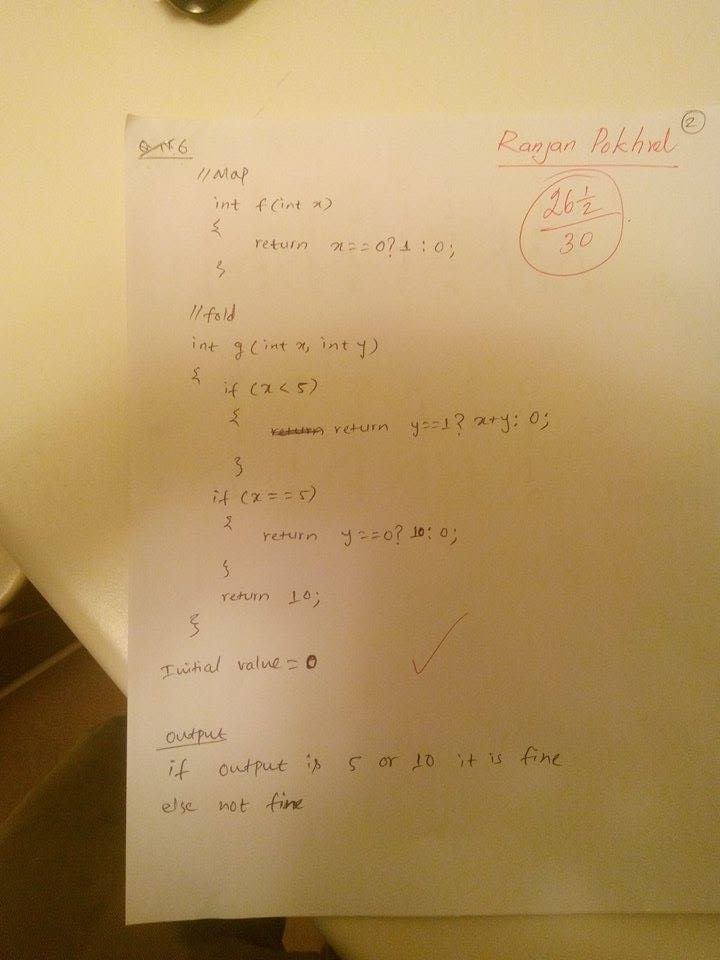 2
Ranjan Pokhrel
26 1/2
30
6
//Map
int f(int x)
{
return x==0?1:0;
}
//fold
int g(int x, int y)
{
if (x<5)
{
return return y==1? x+y: 0;
}
if (x==5)
{
return y==0? 10: 0;
}
return 10;
}
Initial value = 0
output
if output is 5 or 10 it is fine
else not fine